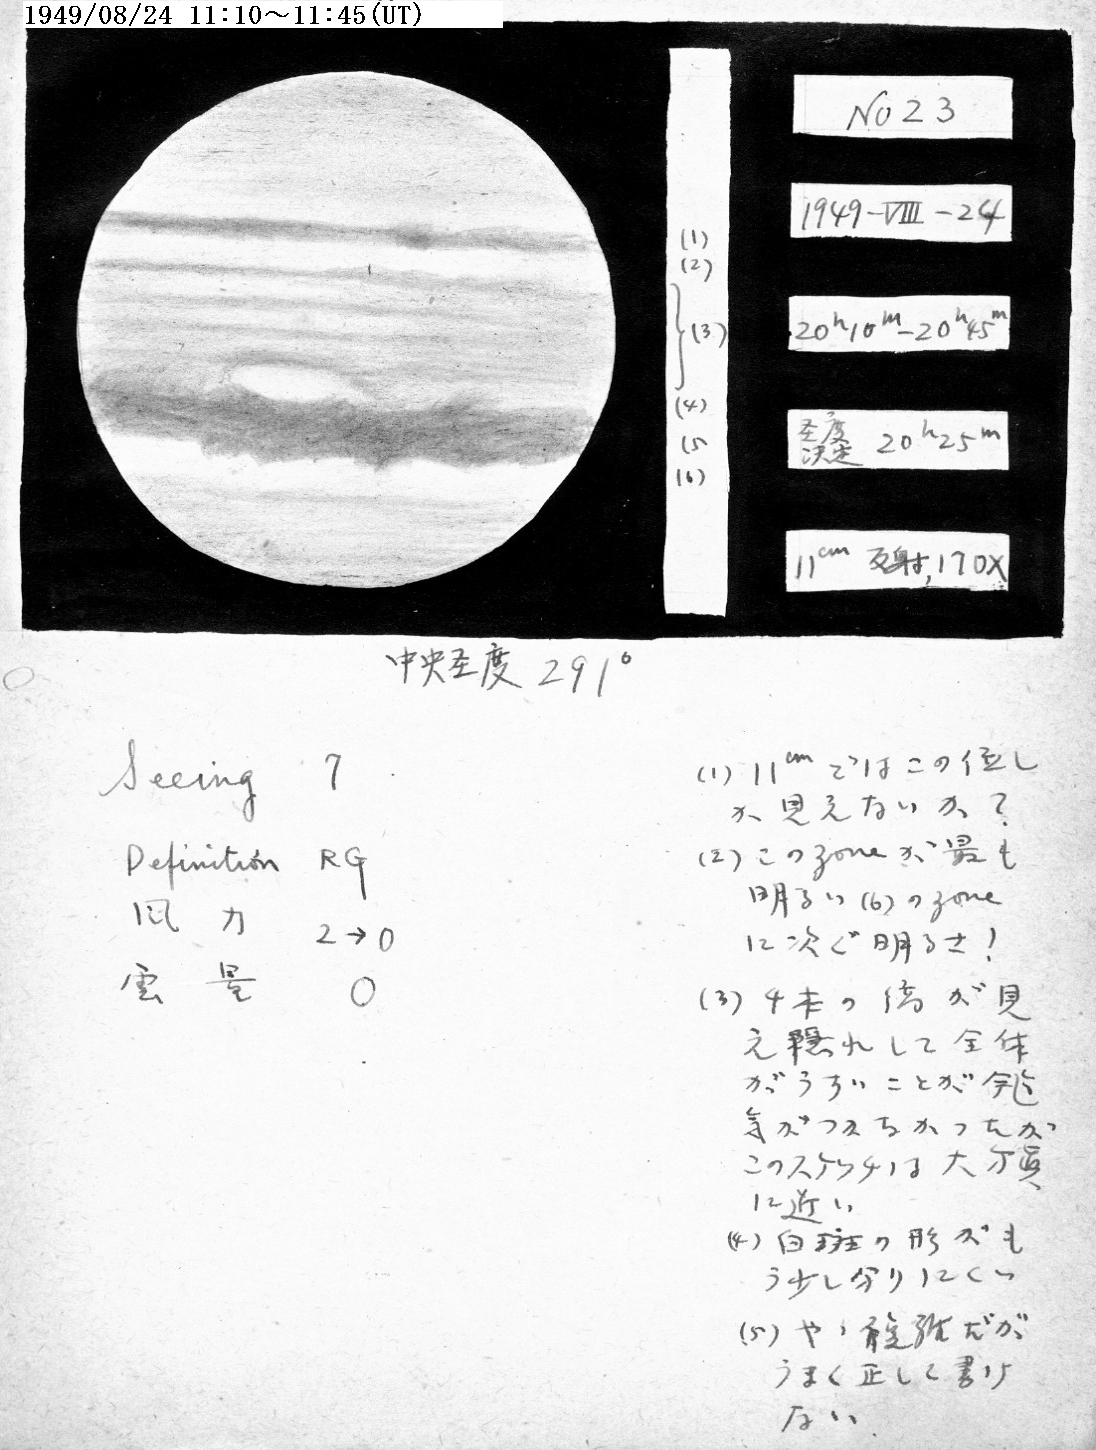 1949/08/24 11:10～11:45(UT)
No 23
1949-VIII-24
20h10m-20h45m
圣度
決定 20h25m
11cm 反射, 170X
(1)
(2)
(3)
(4)
(5
(6)
中央圣度 291°
Seeing 7
Definition RG
風力 2→0
雲量 0
(1) 11cmではこの位し
か見えないか?
(2) このzoneが最も
明るい(6)のzone
に次ぐ明るさ!
(3) 4本の縞が見
え隠れして全体
がうすいことが
気がつ
このスケッチは大分真
に近い
(4) 白斑の形がも
う少し分りにくい
(5) やゝ複雑だが
うまく正して書け
ない